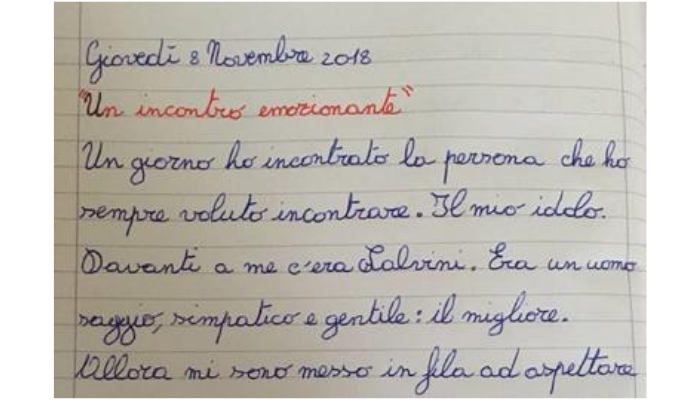 Giovedì 8 Novembre 2018
"Un incontro emozionante"
Un giorno ho incontrato la persona che ho
sempre voluto incontrare. Il mio idolo.
Davanti a me c'era Salvini. Era un uomo
saggio, simpatico e gentile: il migliore.
Allora mi sono messo in fila ad aspettare